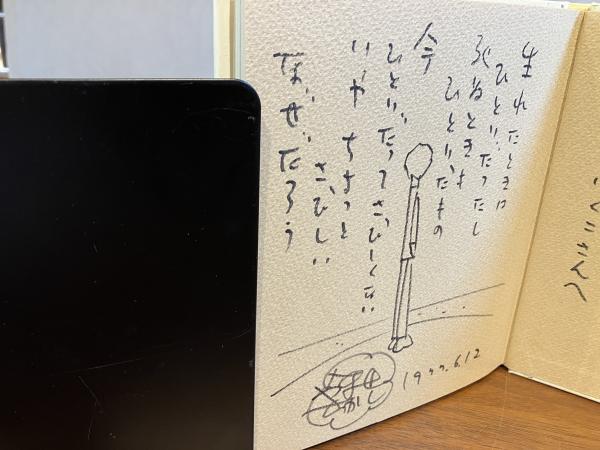 生れたときは
ひとりだったし
死ぬときも
ひとりだもの
今
ひとりだってさびしくない
いや ちょっと
さびしい
なぜだろう
1977.6.12